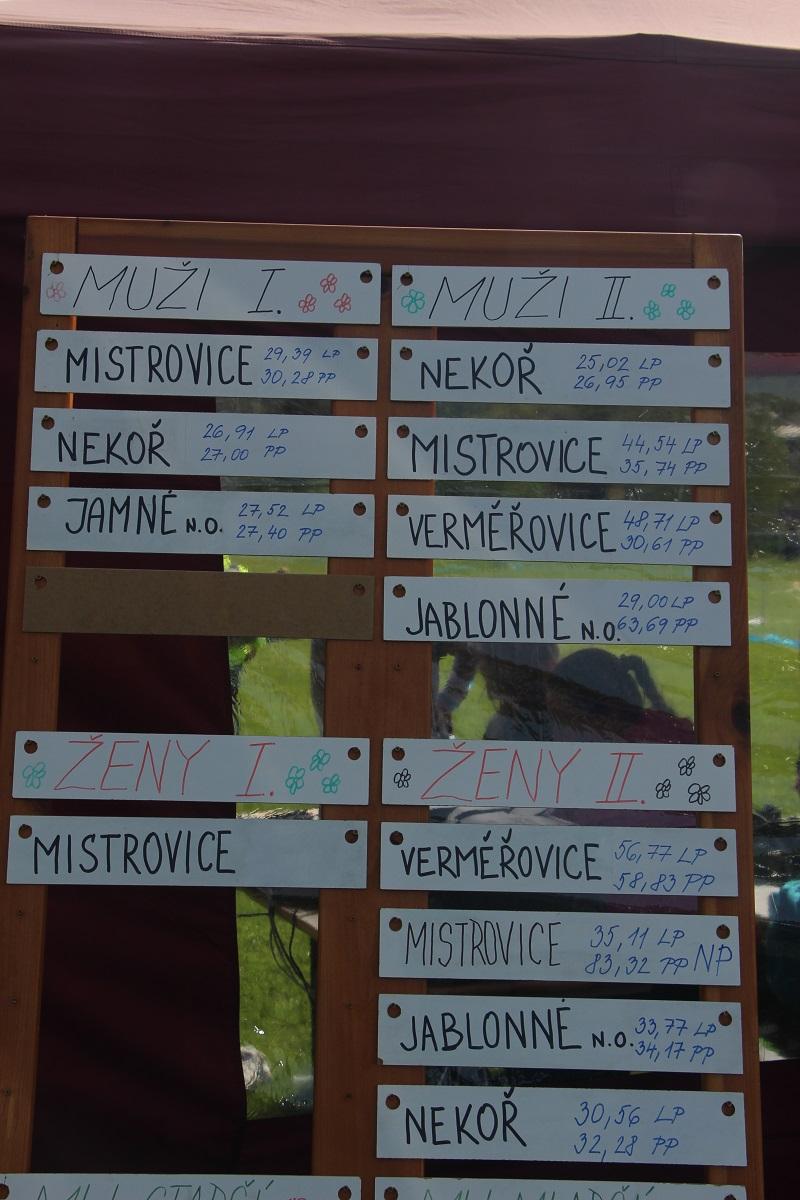 MUŽI I.
MISTROVICE 29,39 LP
30,28 PP
NEKOŘ 26,91 LP
27,00 PP
JAMNÉ N.O. 27,52 LP
27,40 PP
MUŽI II.
NEKOŘ 25,02 LP
26,95 PP
MISTROVICE 44,54 LP
35,74 PP
VERMÉŘOVICE 48,71 LP
30,61 PP
JABLONNÉ N.O. 29,00 LP
63,69 PP
ŽENY I.
MISTROVICE
ŽENY II.
VERMÉŘOVICE 56,77 LP
58,83 PP
MISTROVICE 35,11 LP
83,32 PP NP
JABLONNÉ N.O. 33,77 LP
34,17 PP
NEKOŘ 30,56 LP
32,28 PP